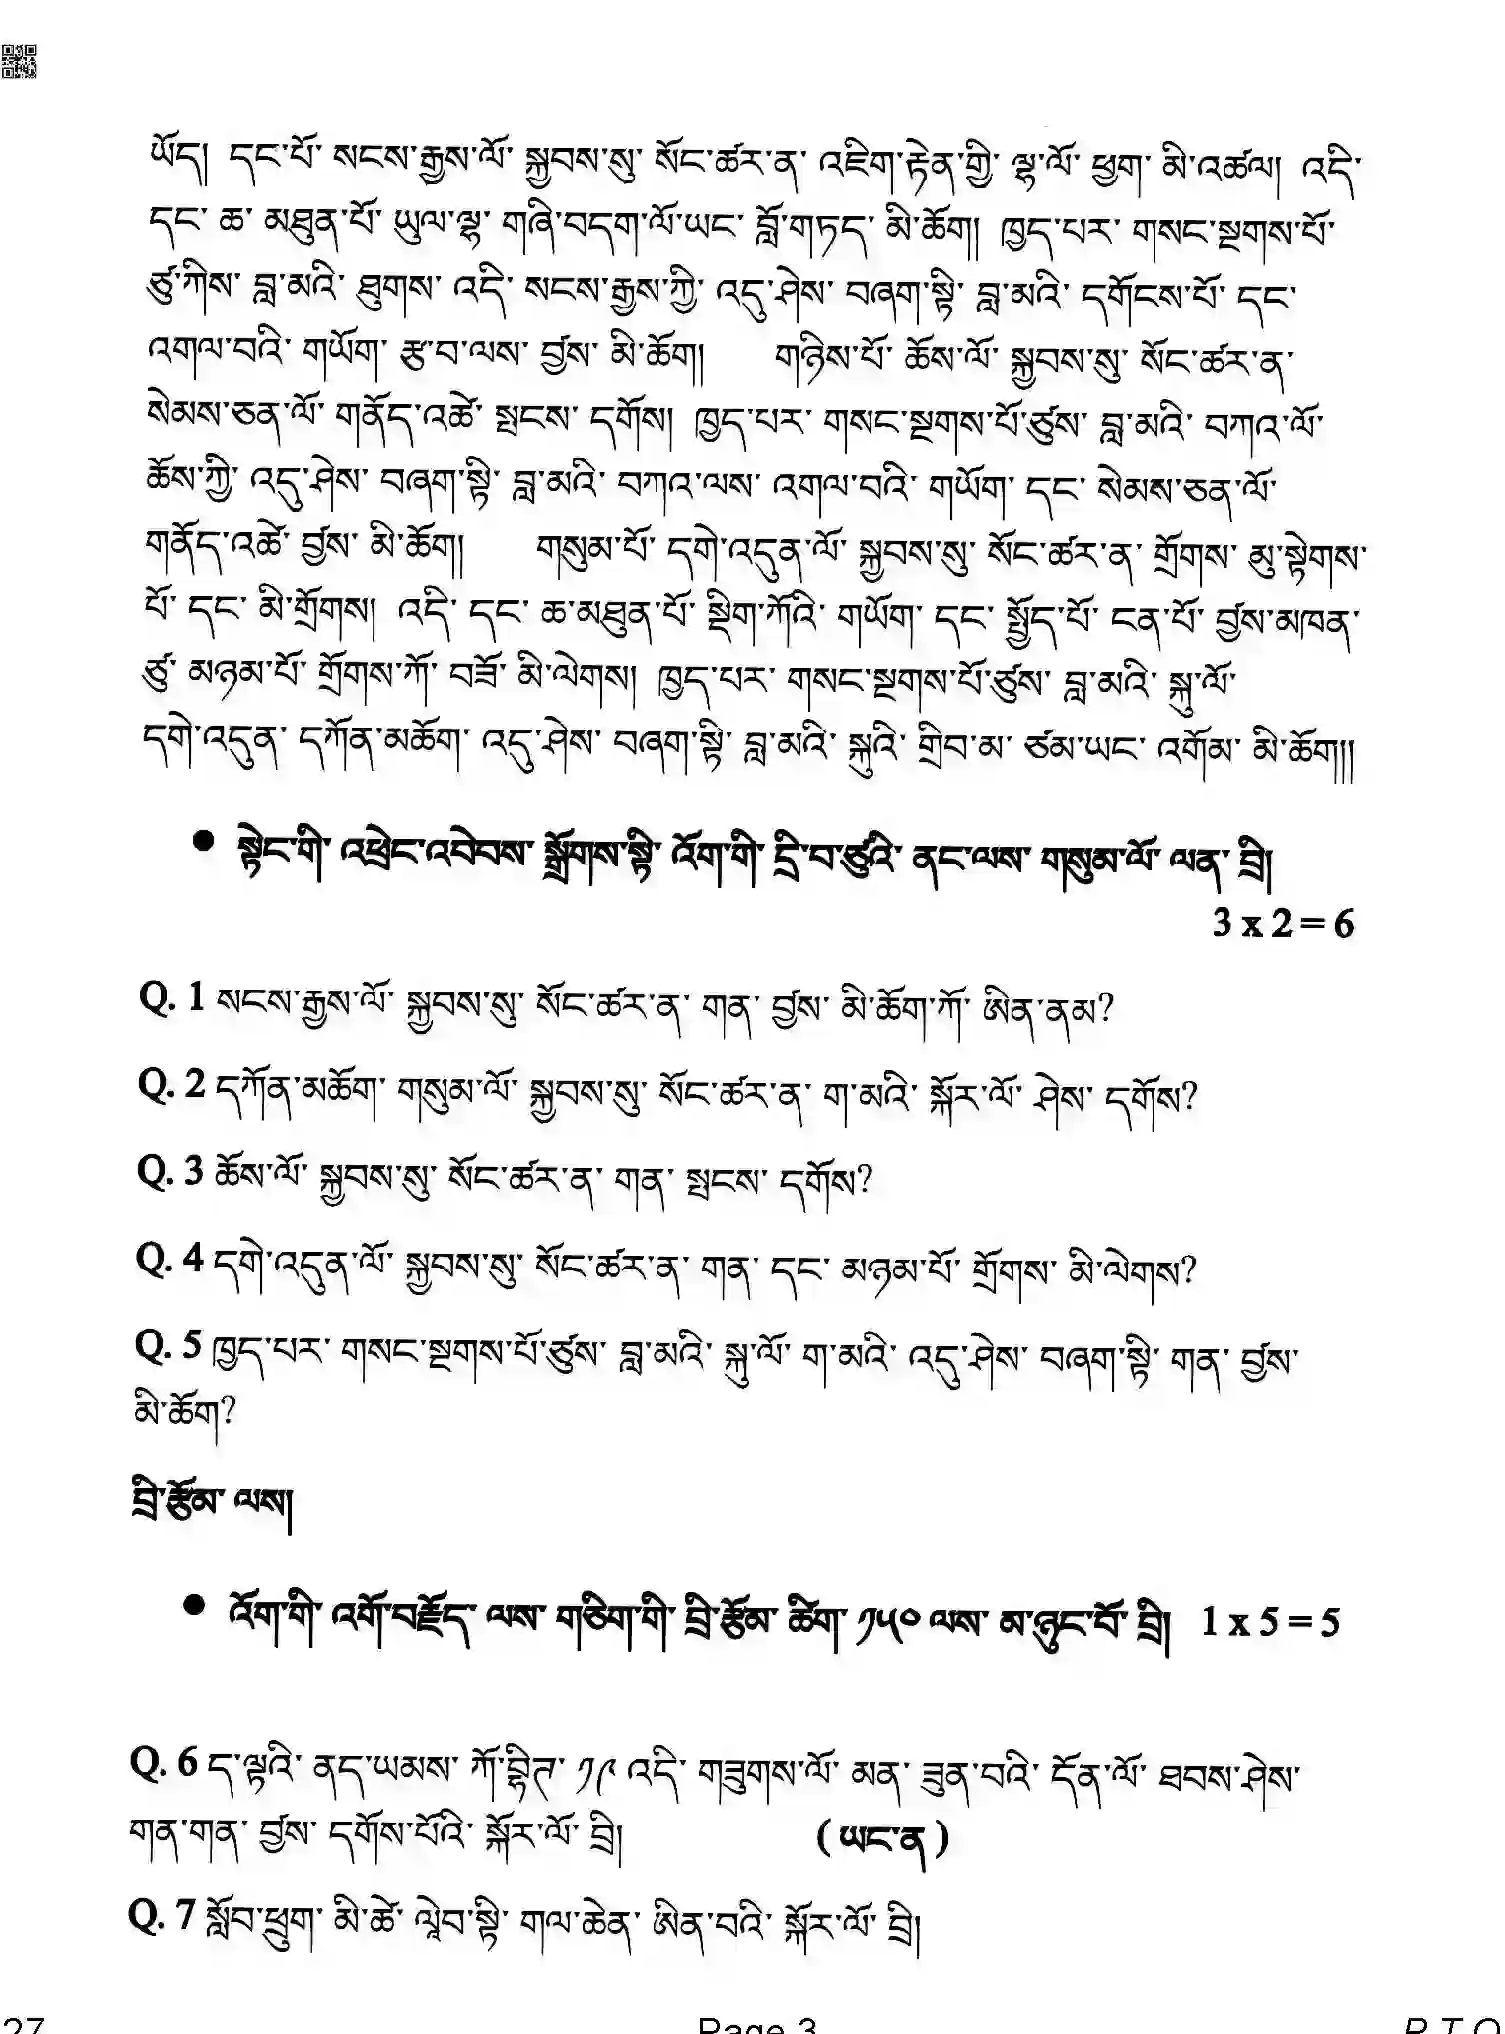 ཡོད། དང་པོ་ སངས་རྒྱས་ལོ་ སྐྱབས་སུ་ སོང་ཚར་ན་ འཇིག་རྟེན་གྱི་ ལྷ་ལོ་ ཕྱག་ མི་འཚལ། འདི་
དང་ ཆ་ མཐུན་པོ་ ཡུལ་ལྷ་ གཞི་བདག་ལོ་ཡང་ བློ་གཏད་ མི་ཆོག། ཁྱད་པར་ གསང་སྔགས་པོ་
ཙུ་ཀིས་ བླ་མའི་ ཐུགས་ འདི་ སངས་རྒྱས་ཀྱི་ འདུ་ཤེས་ བཞག་སྟི་ བླ་མའི་ དགོངས་པོ་ དང་
འགལ་བའི་ གཡོག་ རྩ་བ་ལས་ བྱས་ མི་ཆོག། གཉིས་པོ་ ཆོས་ལོ་ སྐྱབས་སུ་ སོང་ཚར་ན་
སེམས་ཅན་ལོ་ གནོད་འཚེ་ སྤངས་ དགོས། ཁྱད་པར་ གསང་སྔགས་པོ་ཙུས་ བླ་མའི་ བཀའ་ལོ་
ཆོས་ཀྱི་ འདུ་ཤེས་ བཞག་སྟི་ བླ་མའི་ བཀའ་ལས་ འགལ་བའི་ གཡོག་ དང་ སེམས་ཅན་ལོ་
གནོད་འཚེ་ བྱས་ མི་ཆོག། གསུམ་པོ་ དགེ་འདུན་ལོ་ སྐྱབས་སུ་ སོང་ཚར་ན་ གྲོགས་ མུ་སྟེགས་
པོ་ དང་ མི་གྲོགས། འདི་ དང་ ཆ་མཐུན་པོ་ སྡིག་ཀོའི་ གཡོག་ དང་ སྤྱོད་པོ་ ངན་པོ་ བྱས་མཁན་
ཙུ་ མཉམ་པོ་ གྲོགས་ཀོ་ བཟོ་ མི་ལེགས། ཁྱད་པར་ གསང་སྔགས་པོ་ཙུས་ བླ་མའི་ སྐུ་ལོ་
དགེ་འདུན་ དཀོན་མཆོག་ འདུ་ཤེས་ བཞག་སྟི་ བླ་མའི་ སྐུའི་ གྲིབ་མ་ ཙམ་ཡང་ འགོམ་ མི་ཆོག།།
● སྟེང་གི་ འཕྲེང་འབེབས་ སྒྲོགས་སྟི་ འོག་གི་ དྲི་བ་ཙུའི་ ནང་ལས་ གསུམ་ལོ་ ལན་ བྲི།
3 x 2 = 6
Q. 1 སངས་རྒྱས་ལོ་ སྐྱབས་སུ་ སོང་ཚར་ན་ གན་ བྱས་ མི་ཆོག་ཀོ་ ཨིན་ནམ?
Q. 2 དཀོན་མཆོག་ གསུམ་ལོ་ སྐྱབས་སུ་ སོང་ཚར་ན་ ག་མའི་ སྐོར་ལོ་ ཤེས་ དགོས?
Q. 3 ཆོས་ལོ་ སྐྱབས་སུ་ སོང་ཚར་ན་ གན་ སྤངས་ དགོས?
Q. 4 དགེ་འདུན་ལོ་ སྐྱབས་སུ་ སོང་ཚར་ན་ གན་ དང་ མཉམ་པོ་ གྲོགས་ མི་ལེགས?
Q. 5 ཁྱད་པར་ གསང་སྔགས་པོ་ཙུས་ བླ་མའི་ སྐུ་ལོ་ ག་མའི་ འདུ་ཤེས་ བཞག་སྟི་ གན་ བྱས་
མི་ཆོག?
བྲི་རྩོམ་ ལས།
● འོག་གི་ འགོ་བརྗོད་ ལས་ གཅིག་གི་ བྲི་རྩོམ་ ཚིག་ ༡༥༠ ལས་ མ་ཉུང་བོ་ བྲི། 1 x 5 = 5
Q. 6 ད་ལྟའི་ ནད་ཡམས་ ཀོ་བྷིཊ་ ༡༩ འདི་ གཟུགས་ལོ་ མན་ ཟུན་བའི་ དོན་ལོ་ ཐབས་ཤེས་
གན་གན་ བྱས་ དགོས་པོའི་ སྐོར་ལོ་ བྲི། ( ཡང་ན )
Q. 7 སློབ་ཕྲུག་ མི་ཚེ་ ལཱེབ་སྟི་ གལ་ཆེན་ ཨིན་བའི་ སྐོར་ལོ་ བྲི།
27 Page 3 P.T.O